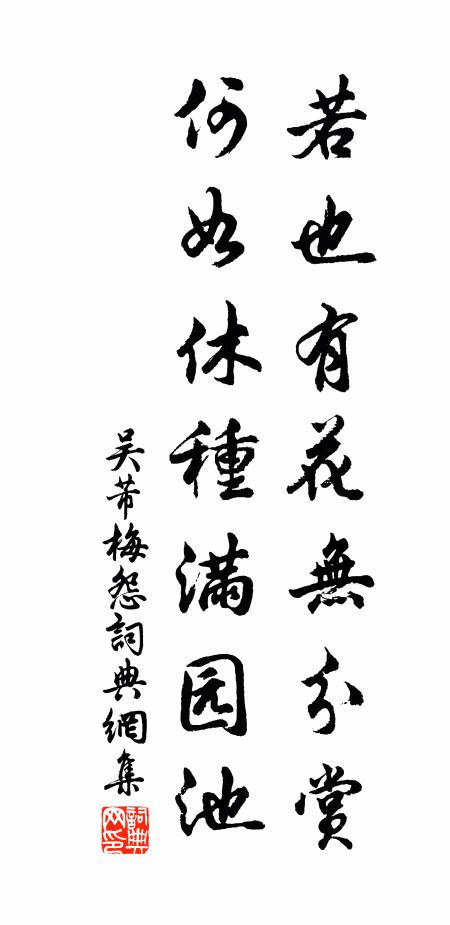 若也有花無分賞
何如休種満园池
吴芾梅怨詞典網集
詞典网印